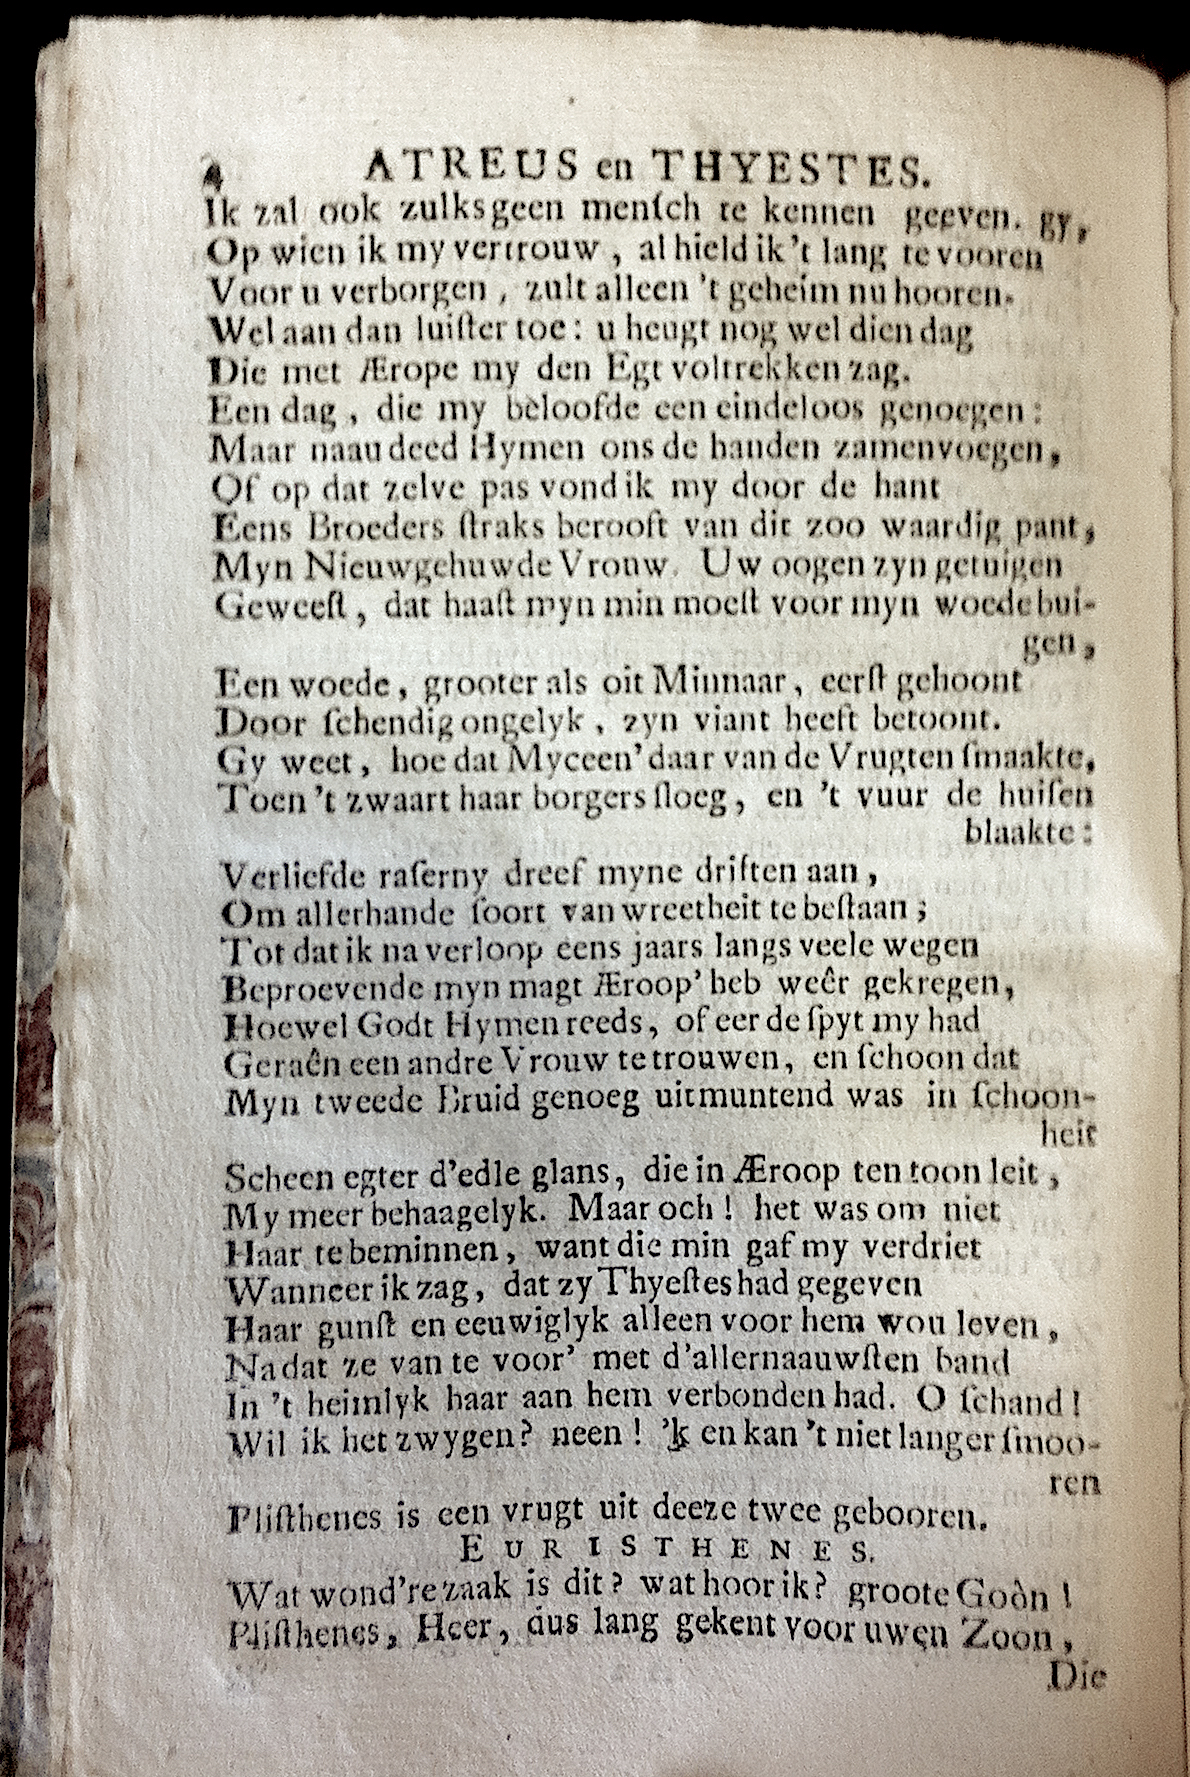 4 ATREUS en THYESTES.
Ik zal ook zulks geen menſch te kennen geeven. gy,
Op wien ik my vertrouw, al hield ik 't lang te vooren
Voor u verborgen, zult alleen 't geheim nu hooren.
Wel aan dan luiſter toe: u heugt nog wel dien dag
Die met Ærope my den Egt voltrekken zag.
Een dag, die my beloofde een eindeloos genoegen:
Maar naau deed Hymen ons de handen zamenvoegen,
Of op dat zelve pas vond ik my door de hant
Eens Broeders ſtraks berooft van dit zoo waardig pant,
Myn Nieuwgehuwde Vrouw. Uw oogen zyn getuigen
Geweeſt, dat haaſt myn min moeſt voor myn woede bui-
gen,
Een woede, grooter als oit Minnaar, eerſt gehoont
Door ſchendig ongelyk, zyn viant heeft betoont.
Gy weet, hoe dat Myceen' daar van de Vrugten ſmaakte,
Toen 't zwaart haar borgers ſloeg, en 't vuur de huiſen
blaakte:
Verliefde raſerny dreef myne driften aan,
Om allerhande ſoort van wreetheit te beſtaan;
Tot dat ik na verloop eens jaars langs veele wegen
Beproevende myn magt Æroop' heb weêr gekregen,
Hoewel Godt Hymen reeds, of eer de ſpyt my had
Geraên een andre Vrouw te trouwen, en ſchoon dat
Myn tweede Bruid genoeg uitmuntend was in ſchoon-
heit
Scheen egter d'edle glans, die in Æroop ten toon leit,
My meer behaagelyk. Maar och! het was om niet
Haar te beminnen, want die min gaf my verdriet
Wanneer ik zag, dat zy Thyeſtes had gegeven
Haar gunſt en eeuwiglyk alleen voor hem wou leven,
Na dat ze van te voor' met d'allernaauwſten band
In 't heimlyk haar aan hem verbonden had. O ſchand!
Wil ik het zwygen? neen! 'k en kan 't niet langer ſmoo-
ren
Pliſthenes is een vrugt uit deeze twee gebooren.
EURISTHENES.
Wat wond're zaak is dit? wat hoor ik? groote Goôn!
Pliſthenes, Heer, dus lang gekent voor uwen Zoon,
Die